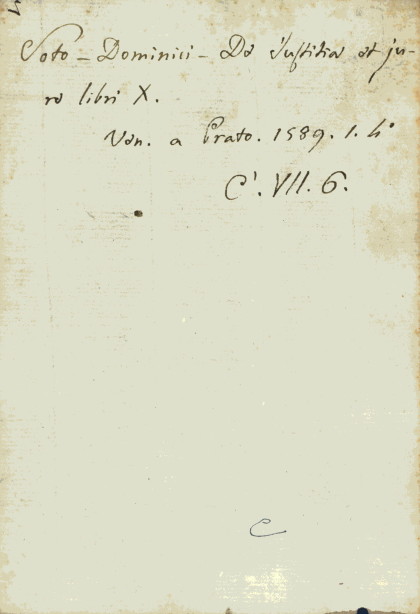 Soto - Dominici - De Justitia et ju-
re libri X.
Ven. a Prato. 1589. 1. 4°
C'. VII. 6.
C